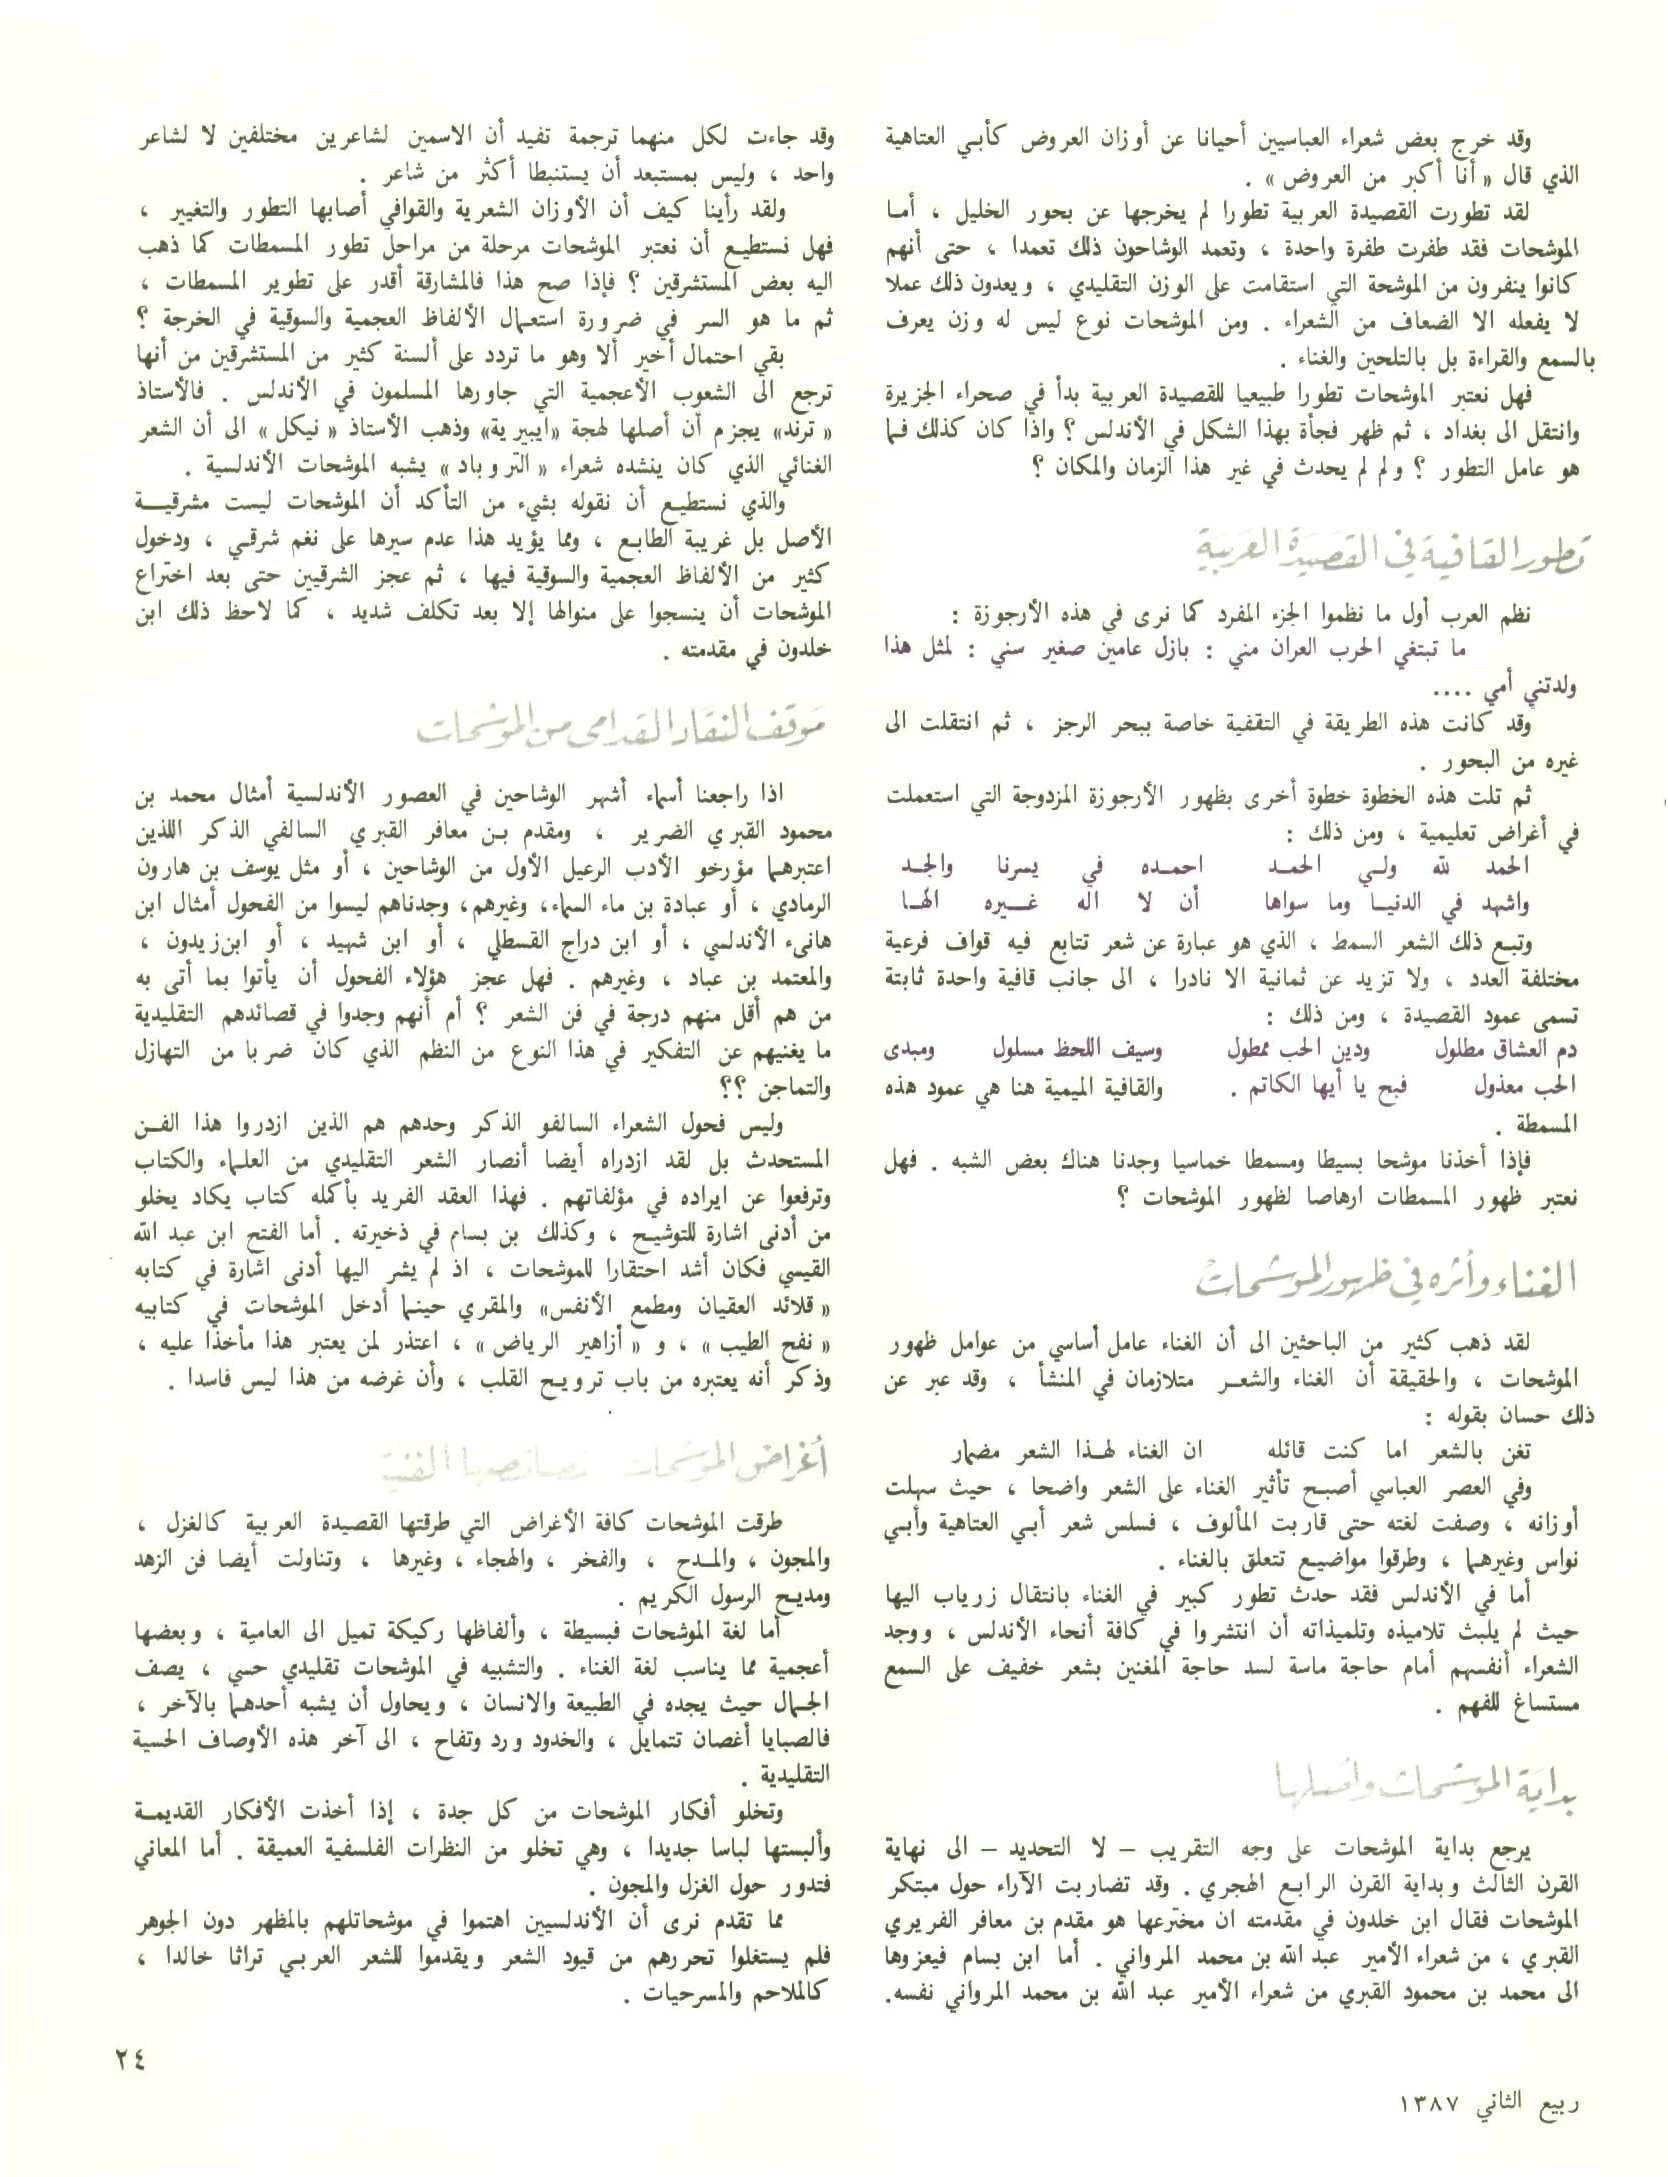 وقد خرج بعض شعراء العباسيين أحيانا عن أوزان العروض كأبي العتاهية
الذي قال « أنا أكبر من العروض» .
لقد تطورت القصيدة العربية تطورا لم يخرجها عن بحور الخليل ، أما
الموشحات فقد طفرت طفرة واحدة ، وتعمد الوشاحون ذلك تعمدا ، حتى أنهم
كانوا ينفرون من الموشحة التي استقامت على الوزن التقليدي ، ويعدون ذلك عملا
لا يفعله الا الضعاف من الشعراء . ومن الموشحات نوع ليس له وزن يعرف
بالسمع والقراءة بل بالتلحين والغناء .
فهل نعتبر الموشحات تطورا طبيعيا للقصيدة العربية بدأ في صحراء الجزيرة
وانتقل الى بغداد ، ثم ظهر فجأة بهذا الشكل في الأندلس ؟ واذا كان كذلك فما
هو عامل التطور ؟ ولم لم يحدث في غير هذا الزمان والمكان ؟
تطور القافية في القصيدة العربية
نظم العرب أول ما نظموا الجزء المفرد كما نرى في هذه الأرجوزة :
ما تبتغي الحرب العران مني : بازل عامين صغير سني : لمثل هذا
ولدتني أمي ....
وقد كانت هذه الطريقة في التقفية خاصة ببحر الرجز ، ثم انتقلت الى
غيره من البحور .
ثم تلت هذه الخطوة خطوة أخرى بظهور الأرجوزة المزدوجة التي استعملت
في أغراض تعليمية ، ومن ذلك :
الحمد لله ولي الحمد احمده في يسرنا والجد
واشهد في الدنيا وما سواها أن لا اله غيره الها
وتبع ذلك الشعر السمط ، الذي هو عبارة عن شعر تتابع فيه قواف فرعية
مختلفة العدد ، ولا تزيد عن ثمانية الا نادرا ، الى جانب قافية واحدة ثابتة
تسمى عمود القصيدة ، ومن ذلك :
دم العشاق مطلول ودين الحب ممطول وسيف اللحظ مسلول ومبدى
الحب معذول فبح يا أيها الكاتم . والقافية الميمية هنا هي عمود هذه
المسمطة .
فإذا أخذنا موشحا بسيطا ومسمطا خماسيا وجدنا هناك بعض الشبه . فهل
نعتبر ظهور المسمطات ارهاصا لظهور الموشحات ؟
الغناء وأثره في ظهور الموشحات
لقد ذهب كثير من الباحثين الى أن الغناء عامل أساسي من عوامل ظهور
الموشحات ، والحقيقة أن الغناء والشعر متلازمان في المنشأ ، وقد عبر عن
ذلك حسان بقوله :
تغن بالشعر اما كنت قائله ان الغناء لهذا الشعر مضمار
وفي العصر العباسي أصبح تأثير الغناء على الشعر واضحا ، حيث سهلت
أوزانه ، وصفت لغته حتى قاربت المألوف ، فسلس شعر أبي العتاهية وأبي
نواس وغيرهما ، وطرقوا مواضيع تتعلق بالغناء .
أما في الأندلس فقد حدث تطور كبير في الغناء بانتقال زرياب اليها
حيث لم يلبث تلاميذه وتلميذاته أن انتشروا في كافة أنحاء الأندلس ، ووجد
الشعراء أنفسهم أمام حاجة ماسة لسد حاجة المغنين بشعر خفيف على السمع
مستساغ للفهم .
بداية الموشحات وأصلها
يرجع بداية الموشحات على وجه التقريب – لا التحديد – الى نهاية
القرن الثالث وبداية القرن الرابع الهجري . وقد تضاربت الآراء حول مبتكر
الموشحات فقال ابن خلدون في مقدمته ان مخترعها هو مقدم بن معافر الفريري
القبري ، من شعراء الأمير عبد الله بن محمد المرواني . أما ابن بسام فيعزوها
الى محمد بن محمود القبري من شعراء الأمير عبد الله بن محمد المرواني نفسه.
وقد جاءت لكل منهما ترجمة تفيد أن الاسمين لشاعرين مختلفين لا لشاعر
واحد ، وليس بمستبعد أن يستنبطا أكثر من شاعر .
ولقد رأينا كيف أن الأوزان الشعرية والقوافي أصابها التطور والتغيير ،
فهل نستطيع أن نعتبر الموشحات مرحلة من مراحل تطور المسمطات كما ذهب
اليه بعض المستشرقين ؟ فإذا صح هذا فالمشارقة أقدر على تطوير المسمطات ،
ثم ما هو السر في ضرورة استعمال الألفاظ العجمية والسوقية في الخرجة ؟
بقي احتمال أخير ألا وهو ما تردد على ألسنة كثير من المستشرقين من أنها
ترجع الى الشعوب الأعجمية التي جاورها المسلمون في الأندلس . فالأستاذ
« ترند» يجزم أن أصلها لهجة «ايبيرية» وذهب الأستاذ « نيكل» الى أن الشعر
الغنائي الذي كان ينشده شعراء « التروباد» يشبه الموشحات الأندلسية .
والذي نستطيع أن نقوله بشيء من التأكد أن الموشحات ليست مشرقية
الأصل بل غريبة الطابع ، ومما يؤيد هذا عدم سيرها على نغم شرقي ، ودخول
كثير من الألفاظ العجمية والسوقية فيها ، ثم عجز الشرقيين حتى بعد اختراع
الموشحات أن ينسجوا على منوالها إلا بعد تكلف شديد ، كما لاحظ ذلك ابن
خلدون في مقدمته .
موقف النقاد القدامى من الموشحات
اذا راجعنا أسماء أشهر الوشاحين في العصور الأندلسية أمثال محمد بن
محمود القبري الضرير ، ومقدم بن معافر القبري السالفي الذكر اللذين
اعتبرهما مؤرخو الأدب الرعيل الأول من الوشاحين ، أو مثل يوسف بن هارون
الرمادي ، أو عبادة بن ماء السماء، وغيرهم، وجدناهم ليسوا من الفحول أمثال ابن
هانىء الأندلسي ، أو ابن دراج القسطلي ، أو ابن شهيد ، أو ابن زيدون ،
والمعتمد بن عباد ، وغيرهم . فهل عجز هؤلاء الفحول أن يأتوا بما أتى به
من هم أقل منهم درجة في فن الشعر ؟ أم أنهم وجدوا في قصائدهم التقليدية
ما يغنيهم عن التفكير في هذا النوع من النظم الذي كان ضربا من التهازل
والتماجن ؟؟
وليس فحول الشعراء السالفو الذكر وحدهم هم الذين ازدروا هذا الفن
المستحدث بل لقد ازدراه أيضا أنصار الشعر التقليدي من العلماء والكتاب
وترفعوا عن ايراده في مؤلفاتهم . فهذا العقد الفريد بأكمله كتاب يكاد يخلو
من أدنى اشارة للتوشيح ، وكذلك بن بسام في ذخيرته . أما الفتح ابن عبد الله
القيسي فكان أشد احتقارا للموشحات ، اذ لم يشر اليها أدنى اشارة في كتابه
« قلائد العقيان ومطمع الأنفس» والمقري حينما أدخل الموشحات في كتابيه
« نفح الطيب » ، و « أزاهير الرياض» ، اعتذر لمن يعتبر هذا مأخذا عليه ،
وذكر أنه يعتبره من باب ترويح القلب ، وأن غرضه من هذا ليس فاسدا .
أغراض الموشحات وخصائصها الفنية
طرقت الموشحات كافة الأغراض التي طرقتها القصيدة العربية كالغزل ،
والمجون ، والمدح ، والفخر ، والهجاء ، وغيرها ، وتناولت أيضا فن الزهد
ومديح الرسول الكريم .
أما لغة الموشحات فبسيطة ، وألفاظها ركيكة تميل الى العامية ، وبعضها
أعجمية مما يناسب لغة الغناء . والتشبيه في الموشحات تقليدي حسي ، يصف
الجمال حيث يجده في الطبيعة والانسان ، ويحاول أن يشبه أحدهما بالآخر ،
فالصبايا أغصان تتمايل ، والخدود ورد وتفاح ، الى آخر هذه الأوصاف الحسية
التقليدية .
وتخلو أفكار الموشحات من كل جدة ، إذا أخذت الأفكار القديمة
وألبستها لباسا جديدا ، وهي تخلو من النظرات الفلسفية العميقة . أما المعاني
فتدور حول الغزل والمجون .
مما تقدم نرى أن الأندلسيين اهتموا في موشحاتهم بالمظهر دون الجوهر
فلم يستغلوا تحررهم من قيود الشعر ويقدموا للشعر العربي تراثا خالدا ،
كالملاحم والمسرحيات .
٢٤
ربيع الثاني ١٣٨٧